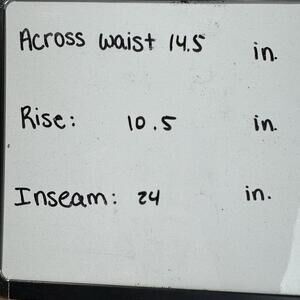 Across waist 14.5 in.
Rise: 10.5 in.
Inseam: 24 in.